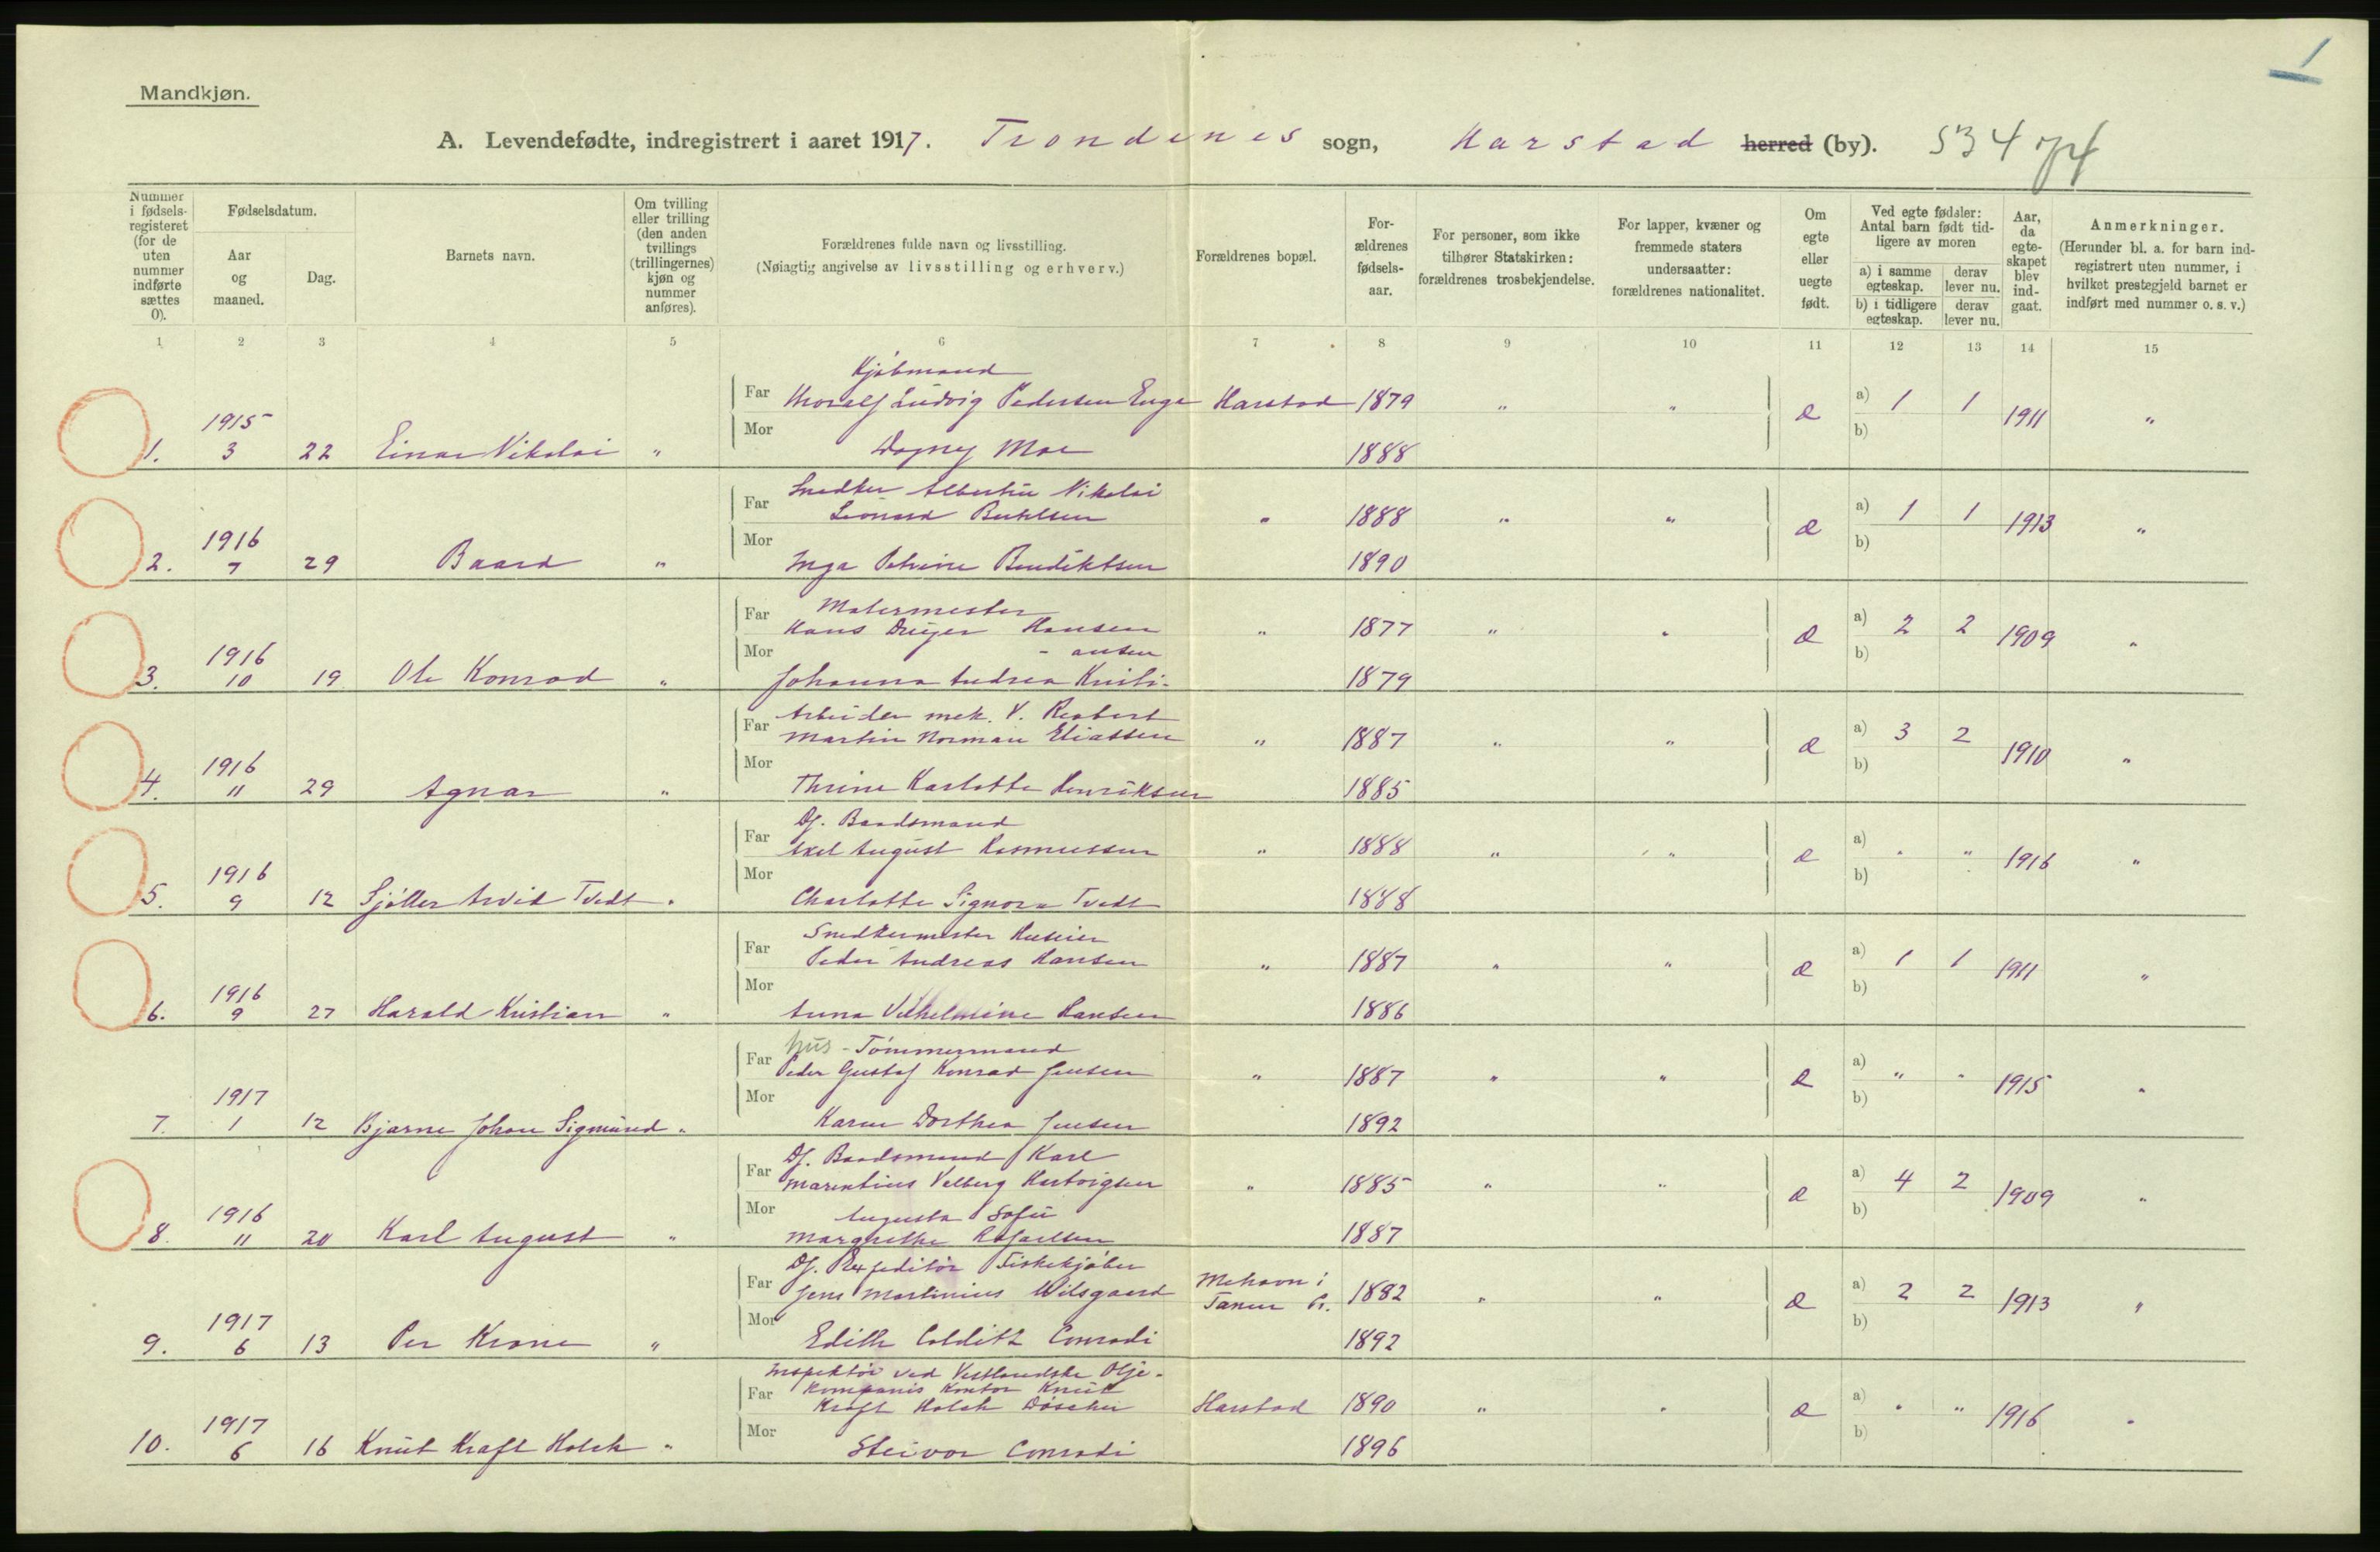 1
Mandkjøn.
A. Levendefødte, indregistrert i aaret 1917. Trondenes sogn, Harstad herred (by). 534
Nummer i fødsels-registeret (for de uten nummer indførte sættes 0).
Fødselsdatum.
Aar og maaned.
Dag.
Barnets navn.
Om tvilling eller trilling (den anden tvillings (trillingernes) kjøn og nummer anføres).
Forældrenes fulde navn og livsstilling.
(Nøiagtig angivelse av livsstilling og erhverv.)
Forældrenes bopæl.
For-ældrenes fødsels-aar.
For personer, som ikke tilhører Statskirken: forældrenes trosbekjendelse.
For lapper, kvæner og fremmede staters undersaatter: forældrenes nationalitet.
Om egte eller uegte født.
Ved egte fødsler: Antal barn født tid-ligere av moren
a) i samme egteskap.
derav lever nu.
b) i tidligere egteskap.
derav lever nu.
Aar, da egte-skapet blev ind-gaat.
Anmerkninger.
(Herunder bl. a. for barn ind-registrert uten nummer, i hvilket prestegjeld barnet er indført med nummer o. s. v.)
1 2 3 4 5 6 7 8 9 10 11 12 13 14 15
Kjøbmand
Far Thoralf Ludvig Pedersen Enge Harstad 1879 " " æ a) 1 1 1911 "
1915
Mor b)
1. 3 22 Einar Nikolai " Dagny Moe 1888
Snedker Albertin Nikolai
Far Leonard " 1888 " " æ a) 1 1 1913 "
1916
Mor b)
2. 7 29 Baard " Inga Petrine Bendiktsen 1890
Far Malermester
Hans Dreyer Hansen " 1877 " " æ a) 2 2 1909 "
Mor - ansen b)
1916
3. 10 19 Ole Konrad " Johanna Andrea Kristi- 1879
Arbeider mek. V.
Far Martin Norman Eliassen " 1887 " " æ a) 3 2 1910 "
Mor b)
1916
4. 11 29 Agnar " Thrine Karlotte Henriksen 1885
Df. Baadsmand
Far Axel August Rasmussen " 1888 " " æ a) " " 1916 "
Mor b)
1916
5. 9 12 Arvid Tvedt " Charlotte Signora Tvedt 1888
Snedkermester
Far Peder Andreas Hansen " 1887 " " æ a) 1 1 1911 "
Mor b)
1916
6. 9 27 Harald Kristian " Anna Vilhelmine Hansen 1886
hus - Tømmermand
Far Peder Gustaf Konrad Jensen " 1887 " " æ a) " " 1915 "
Mor b)
1917
7. 1 12 Bjarne Johan Sigmund " Karen Dorthea Jensen 1892
Df. Baadsmand Karl
Far Marentius Valberg Hartvigsen " 1885 " " æ a) 4 2 1909 "
Mor Augusta Sofie b)
1916
8. 11 20 Karl August " Margrethe Rafaelsen 1887
Df. Expeditør Fiskekjøber
Far Jens Martinius Wilsgaard Mehavn i Tanen Pr. 1882 " " æ a) 2 2 1913 "
Mor b)
1917
9. 6 13 Per Krone " Edith Colditz Conradi 1892
Inspektør ved Vestlandske Olje-
kompanis kontor Knut
Far Kraft Holck Døscher Harstad 1890 " " æ a) " " 1916 "
Mor b)
1917
10. 6 16 Knut Kraft Holck " Steivor Conradi 1896